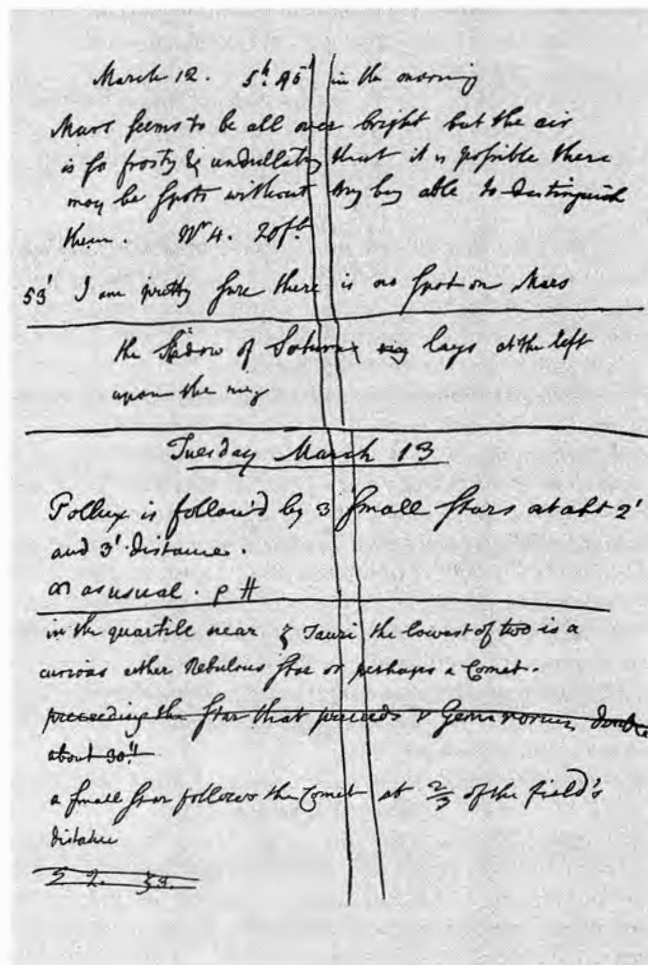 March 12. 5h 45' in the morning
Mars seems to be all over bright but the air
is so frosty & undulating that it is possible there
may be spots without my being able to distinguish
them. 20 ft.
53' I am pretty sure there is no spot on Mars
the shadow of Saturn lays at the left
upon the ring
Tuesday March 13
Pollux is follow'd by 3 small stars at abt 2'
and 3' distance.
as usual. p #
in the quartile near ζ Tauri the lowest of two is a
curious either Nebulous star or perhaps a Comet.
preceeding the star that preceeds Geminorum double
about 30"
a small star follows the Comet at 2/3 of the field's
distance